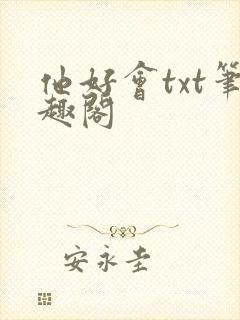 他好會txt筆
趣閣
安永圭